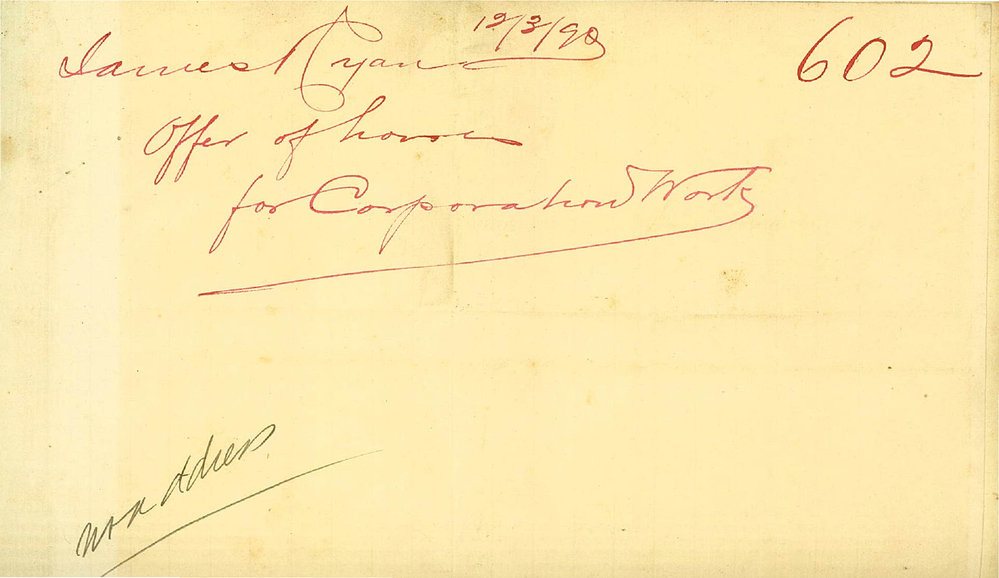 James Ryan 12/3/90 602
Offer of horse
for Corporation Work
address